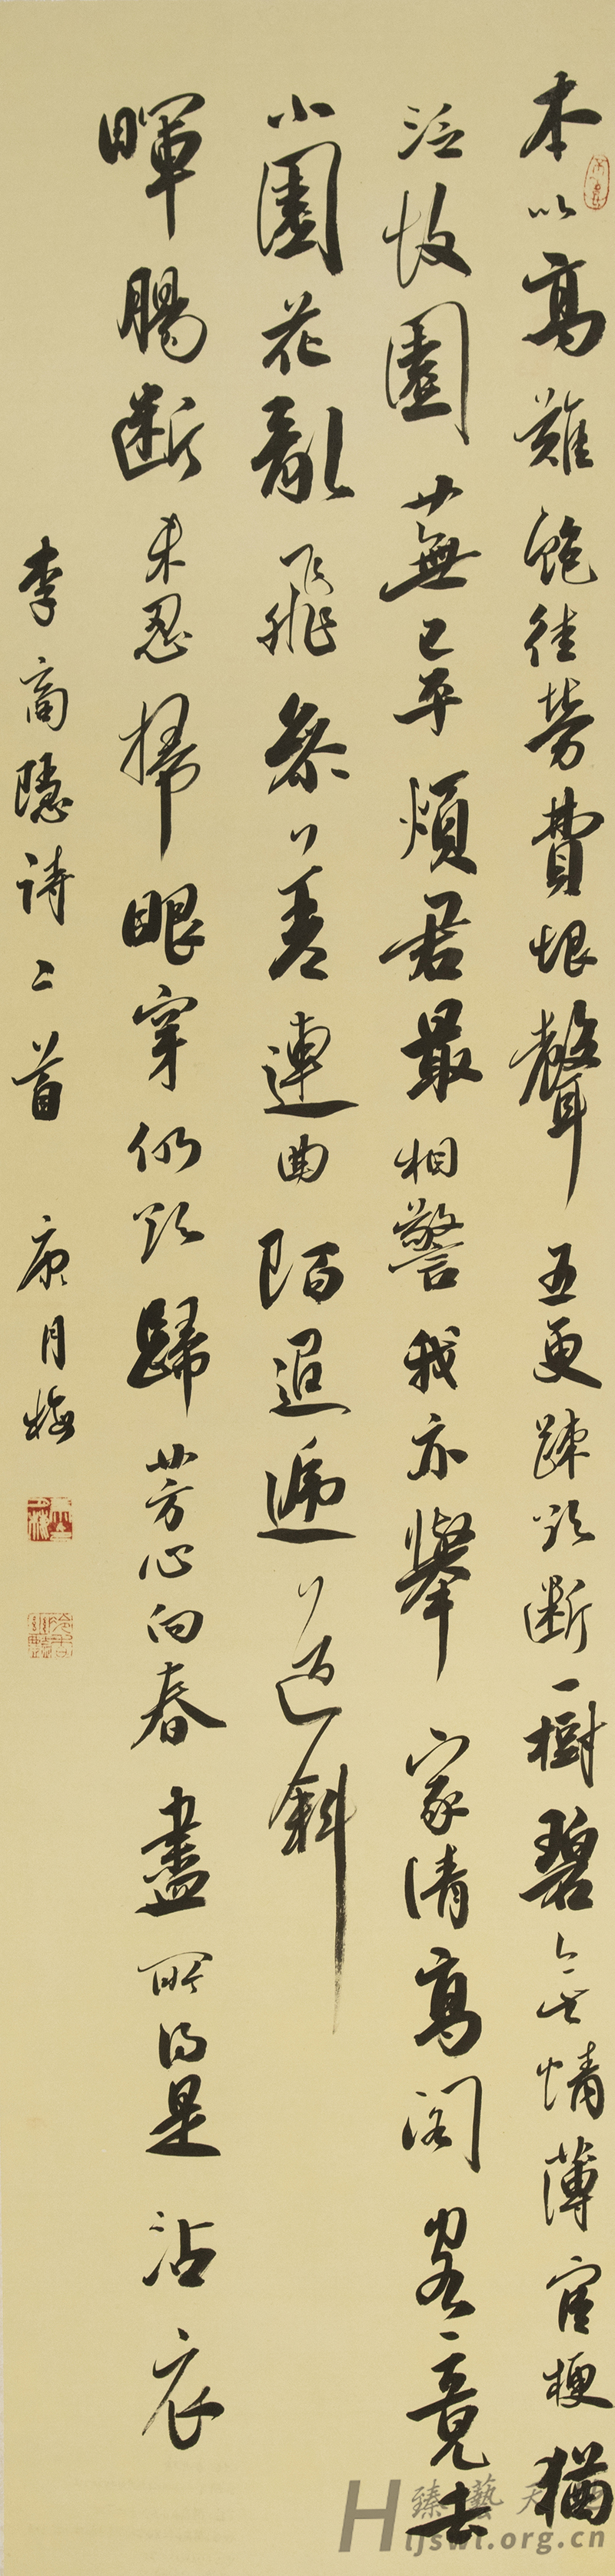 本以高難飽徒勞費恨聲五更疎欲斷一樹碧無情薄宦梗猶
泛故園蕪已平煩君最相警我亦舉家清高閣客竟去
小園花亂飛參差連曲陌迢遞送斜
暉腸斷未忍掃眼穿仍欲歸芳心向春盡所得是沾衣
李商隱诗二首 康月梅
臻藝天
tjswl.org.cn